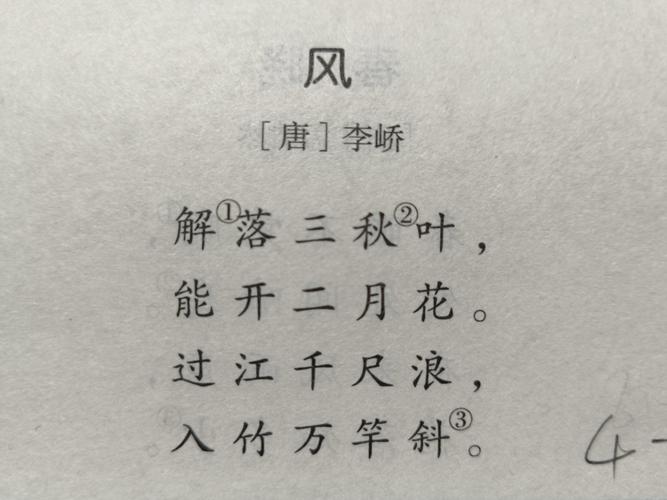 风
[唐] 李峤
解①落三秋②叶，
能开二月花。
过江千尺浪，
入竹万竿斜③。
4